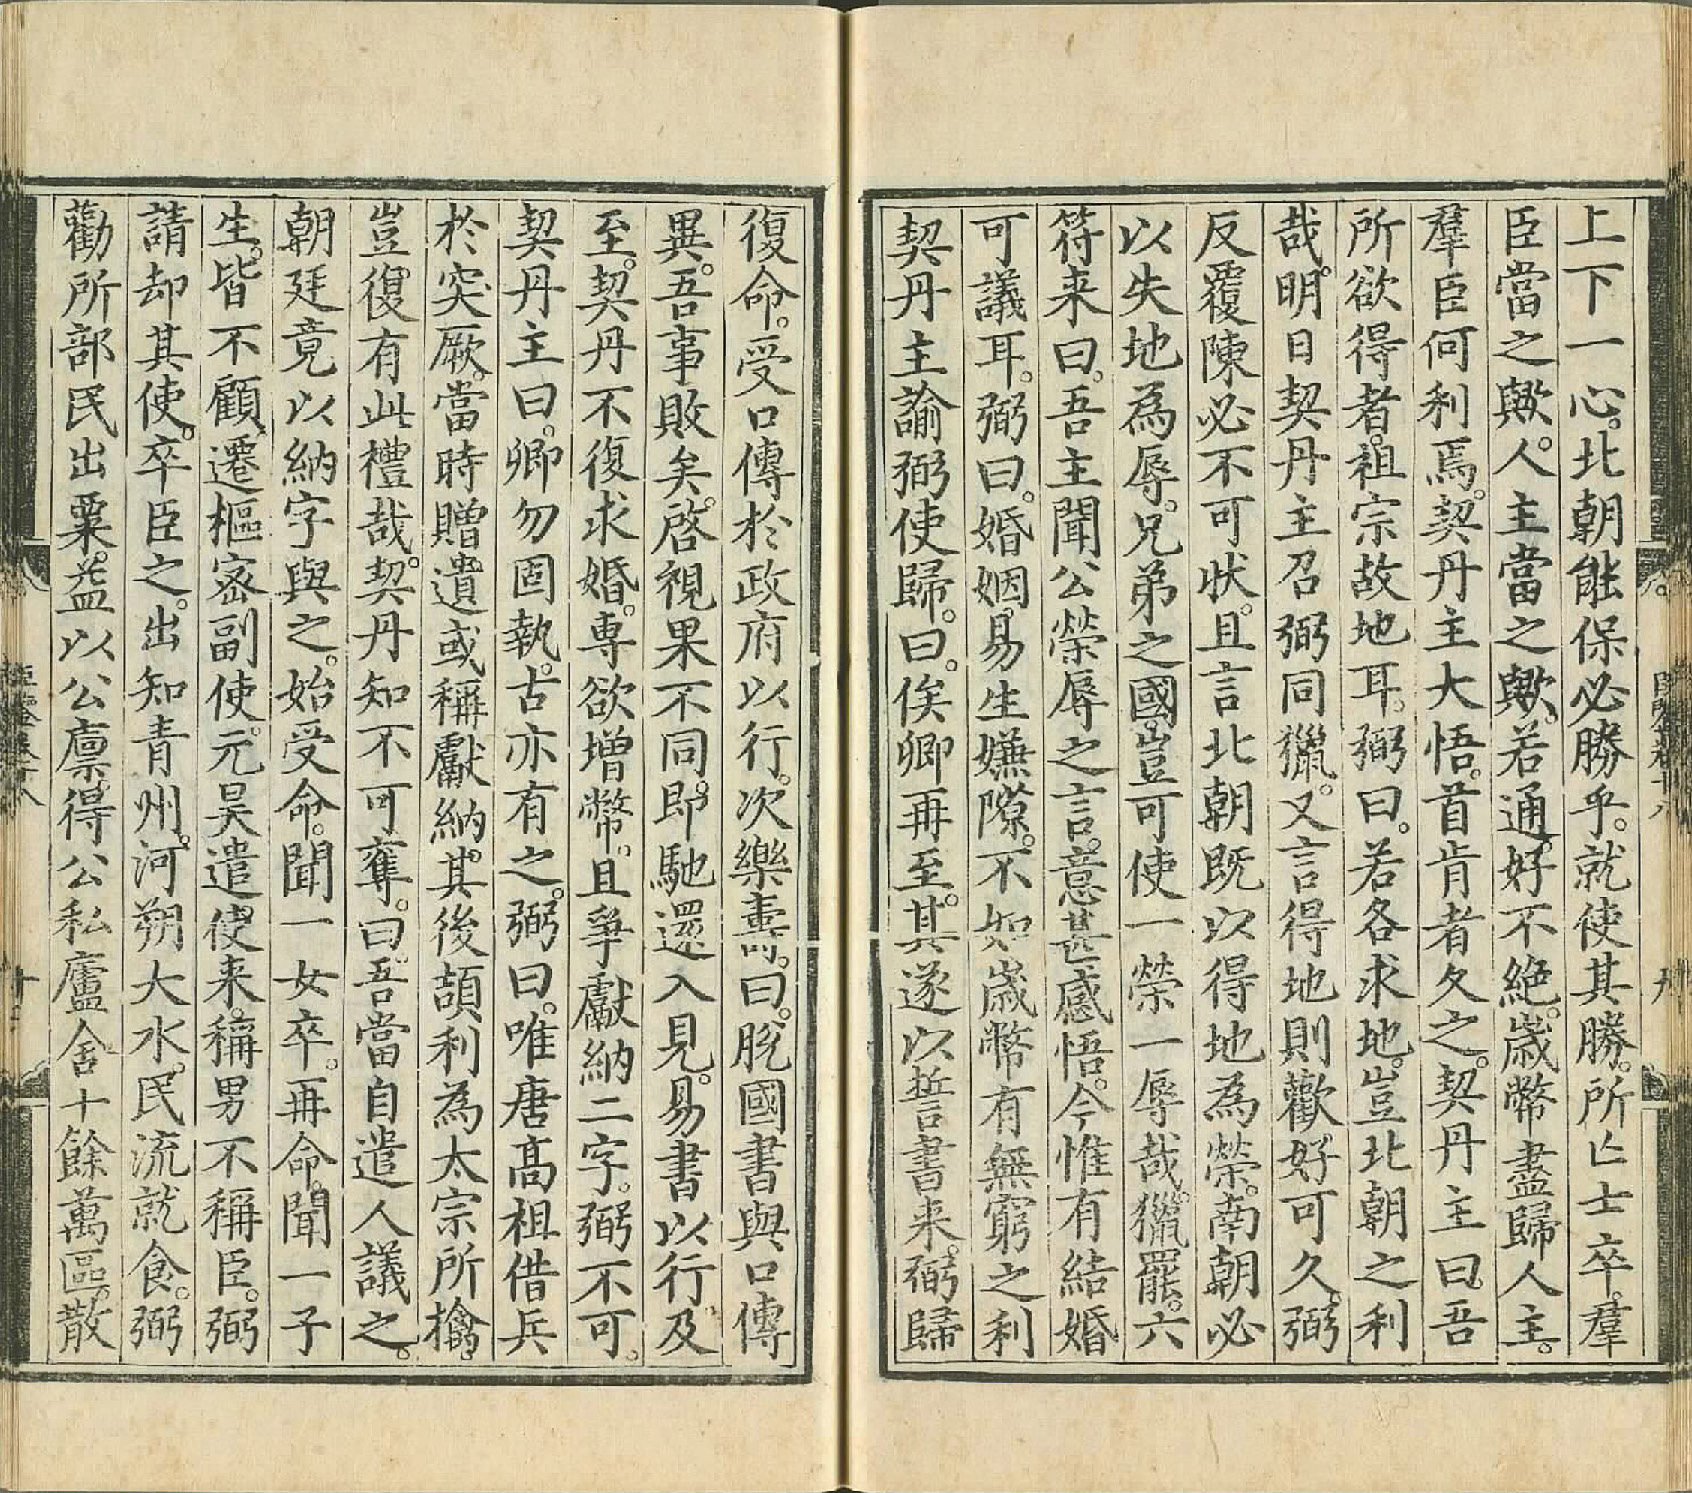 上下一心。北朝能保必勝乎。就使其勝。所亡士卒。羣
臣當之歟。人主當之歟。若通好不絕。歲幣盡歸人主。
羣臣何利焉。契丹主大悟。首肯者久之。契丹主曰。吾
所欲得者。祖宗故地耳。弼曰。若各求地。豈北朝之利
哉。明日契丹主召弼同獵。又言得地則歡好可久。弼
反覆陳必不可狀。且言北朝既以得地為榮。南朝必
以失地為辱。兄弟之國。豈可使一榮一辱哉。獵罷。六
符来曰。吾主聞公榮辱之言。意甚感悟。今惟有結婚
可議耳。弼曰。婚姻易生嫌隙。不如歲幣有無窮之利
契丹主諭弼使歸。曰。俟卿再至。其遂以誓書来。弼歸
復命。受口傳於政府以行。次樂壽。曰。脫國書與口傳
異。吾事敗矣。啓視果不同。即馳還入見。易書以行及
至。契丹不復求婚。專欲增幣。且爭獻納二字。弼不可。
契丹主曰。卿勿固執。古亦有之。弼曰。唯唐高祖借兵
於突厥。當時贈遺或稱獻納。其後頡利為太宗所擒。
豈復有此禮哉。契丹知不可奪。曰。吾當自遣人議之。
朝廷竟以納字與之。始受命。聞一女卒。再命。聞一子
生。皆不顧。遷樞密副使。元昊遣使来。稱男不稱臣。弼
請却其使。卒臣之。出知青州。河朔大水。民流就食。弼
勸所部民出粟。益以公廪。得公私廬舍十餘萬區。散